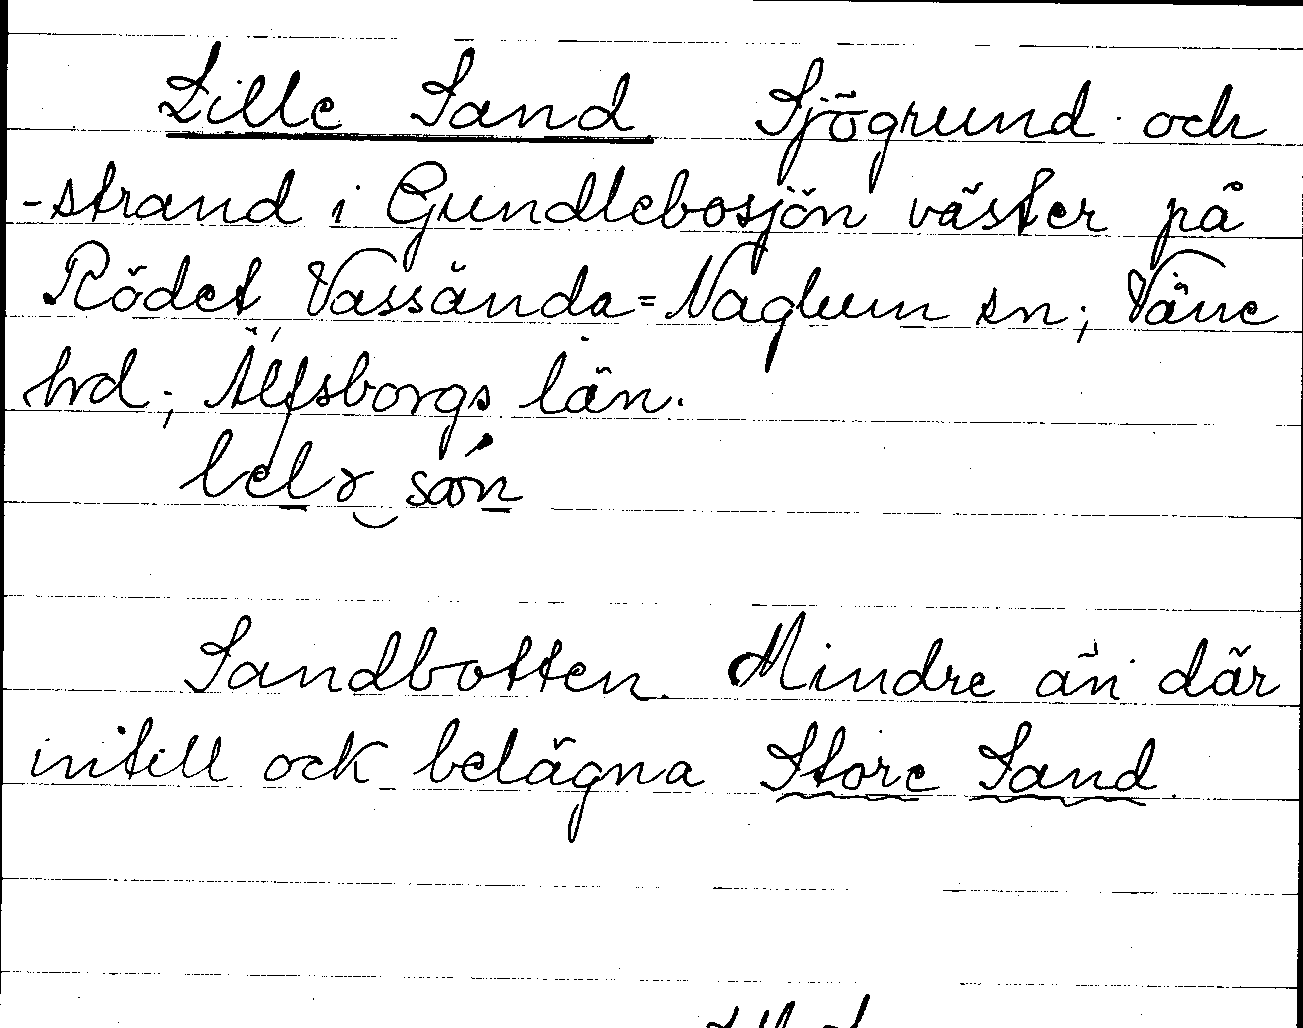 Lille Sand Sjögrund och
-strand i Gundlebosjön väster på
Rödet Vassända=Naglum sn; Väne
hrd; Älfsborgs län.
Sandbotten. Mindre än där
intill ock belägna Store Sand.